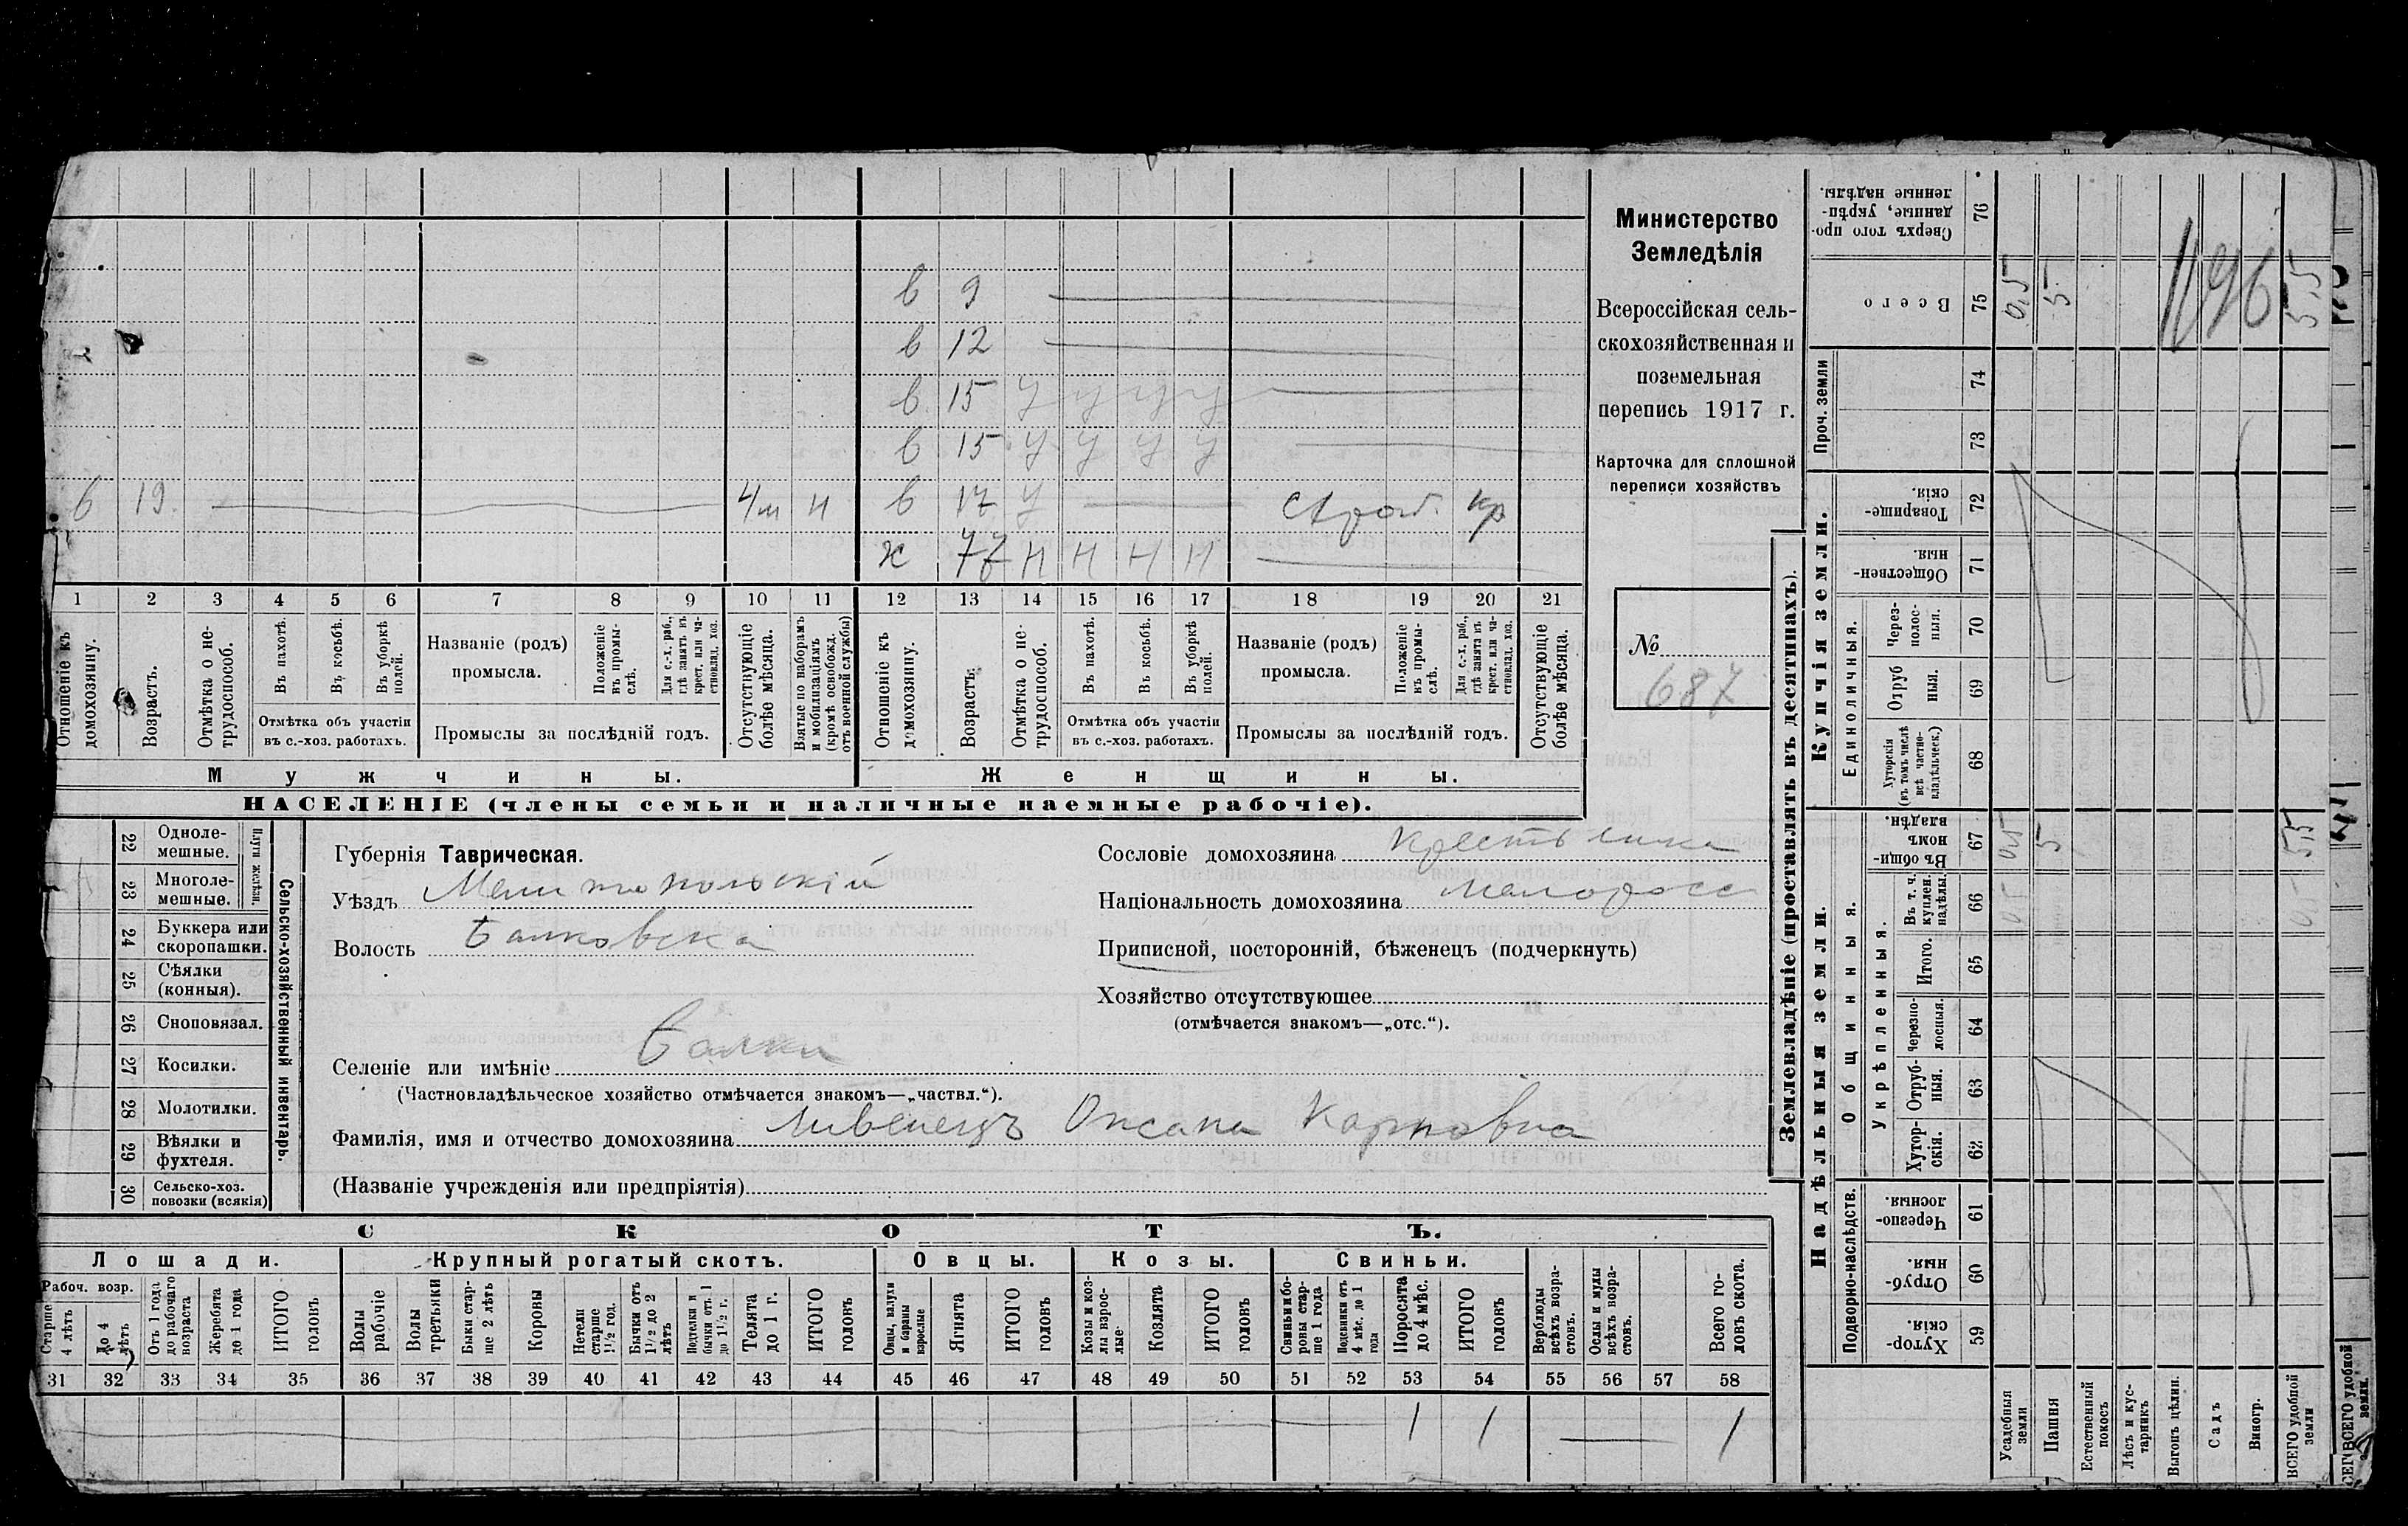 в 9
в 12
в 15 у у у у
в 15 у у у у
в 19 4м н в 17 у кр
ж 77 н н н н
1 2 3 4 5 6 7 8 9 10 11 12 13 14 15 16 17 18 19 20 21
Отношеніе къ домохозяину.
Возрастъ.
Отмѣтка о нетрудоспособ.
Въ пахотѣ.
Въ косьбѣ.
Въ уборкѣ полей.
Отмѣтка объ участіи въ с.-хоз. работахъ.
Названіе (родъ) промысла.
Положеніе въ промыслѣ.
Для с.-х. раб., гдѣ занятъ въ крест. или частновлад. хоз.
Промыслы за послѣдній годъ.
Отсутствующіе болѣе мѣсяца.
Взятые по наборамъ и мобилизаціямъ (кромѣ освобожд. отъ военной службы)
Отношеніе къ домохозяину.
Возрастъ.
Отмѣтка о нетрудоспособ.
Въ пахотѣ.
Въ косьбѣ.
Въ уборкѣ полей.
Отмѣтка объ участіи въ с.-хоз. работахъ.
Названіе (родъ) промысла.
Положеніе въ промыслѣ.
Для с.-х. раб., гдѣ занята въ крест. или частновлад. хоз.
Промыслы за послѣдній годъ.
Отсутствующіе болѣе мѣсяца.
Мужчины. Женщины.
НАСЕЛЕНІЕ (члены семьи и наличные наемные рабочіе).
Министерство
Земледѣлія
Всероссійская сель-
скохозяйственная и
поземельная
перепись 1917 г.
Карточка для сплошной
переписи хозяйствъ
№
687
22 Однолемешные.
23 Многолемешные.
Плуги желѣзн.
24 Буккера или скоропашки.
25 Сѣялки (конныя).
26 Сноповязал.
27 Косилки.
28 Молотилки.
29 Вѣялки и фухтеля.
30 Сельско-хоз. повозки (всякія)
Сельско-хозяйственный инвентарь.
Губернія Таврическая.
Уѣздъ Мелитопольскій
Волость Балковска
Сословіе домохозяина крестьянка
Національность домохозяина малоросс
Приписной, посторонній, бѣженецъ (подчеркнуть)
Хозяйство отсутствующее
(отмѣчается знакомъ—„отс.“).
Селеніе или имѣніе Балки
(Частновладѣльческое хозяйство отмѣчается знакомъ—„частвл.“).
Фамилія, имя и отчество домохозяина Ливенецъ Оксана Карповна
(Названіе учрежденія или предпріятія)
СКОТЪ.
Лошади. Крупный рогатый скотъ. Овцы. Козы. Свиньи.
Рабоч. возр.
Старше 4 лѣтъ
До 4 лѣтъ
Отъ 1 года до рабочаго возраста
Жеребята до 1 года
ИТОГО головъ
Волы рабочіе
Волы третьяки
Быки старше 2 лѣтъ
Коровы
Нетели старше 1½ год.
Бычки отъ 1½ до 2 лѣтъ
Подтелки и бычки отъ 1 до 1½ г.
Телята до 1 г.
ИТОГО головъ
Овцы, валухи и бараны взрослые
Ягнята
ИТОГО головъ
Козы и козлы взрослые.
Козлята
ИТОГО головъ
Свиньи и боровы старше 1 года
Подсвинки отъ 4 мѣс. до 1 года
Поросята до 4 мѣс.
ИТОГО головъ
Верблюды всѣхъ возрастовъ.
Ослы и мулы всѣхъ возрастовъ.
Всего головъ скота.
31 32 33 34 35 36 37 38 39 40 41 42 43 44 45 46 47 48 49 50 51 52 53 54 55 56 57 58
1 1 1
Землевладѣніе (проставлять въ десятинахъ).
Сверхъ того проданные, укрѣпленные надѣлы. 76
Всего 75 0,5 5 5,5
1196
Проч. земли 74 73
Купчія земли.
Товарищескія. 72
Общественныя. 71
Единоличныя.
Черезполосныя. 70
Отрубныя. 69
Хуторскія (въ томъ числѣ всѣ частновладѣльческ.) 68
Надѣльныя земли.
Общинныя.
Въ общинномъ владѣн. 67 0,5 5 5,5
Укрѣпленныя.
Въ т. ч. куплен. надѣлы. 66
Итого. 65
Черезполосныя. 64
Отрубныя. 63
Хуторскія. 62
Подворно-наслѣдств.
Черезполосныя 61
Отрубныя. 60
Хуторскія. 59
Усадебныя земли
Пашня
Естественный покосъ
Лѣсъ и кустарникъ
Выгонъ цѣлин.
Садъ
Виногр.
ВСЕГО удобной земли
ВСЕГО удобной земли.